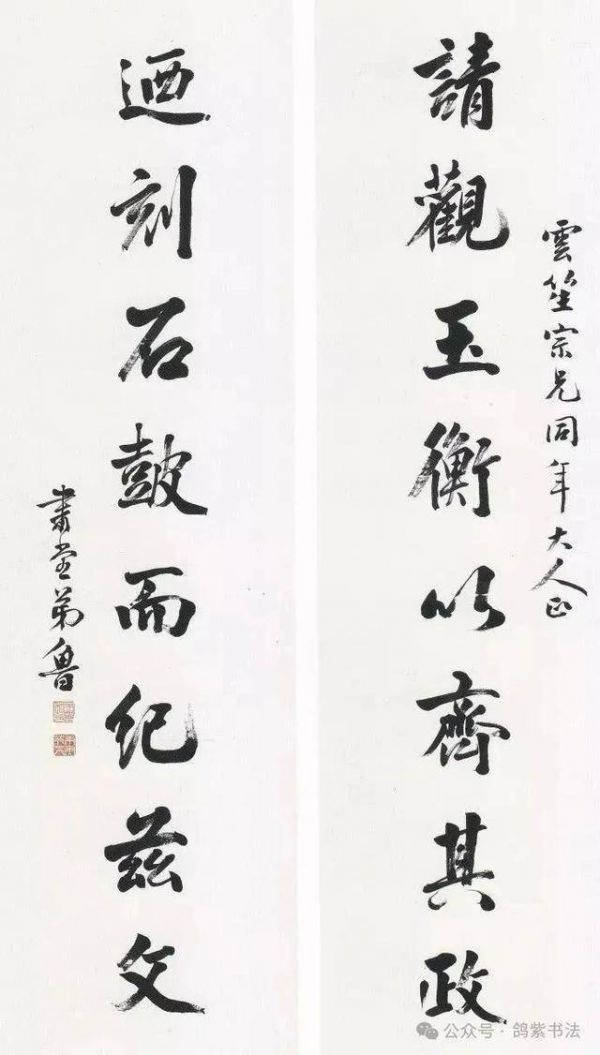 雲笙宗兄同年大人正
請觀玉衡以齊其政
迺刻石鼓而纪兹文
書堂弟魯
公众号·鸽紫书法